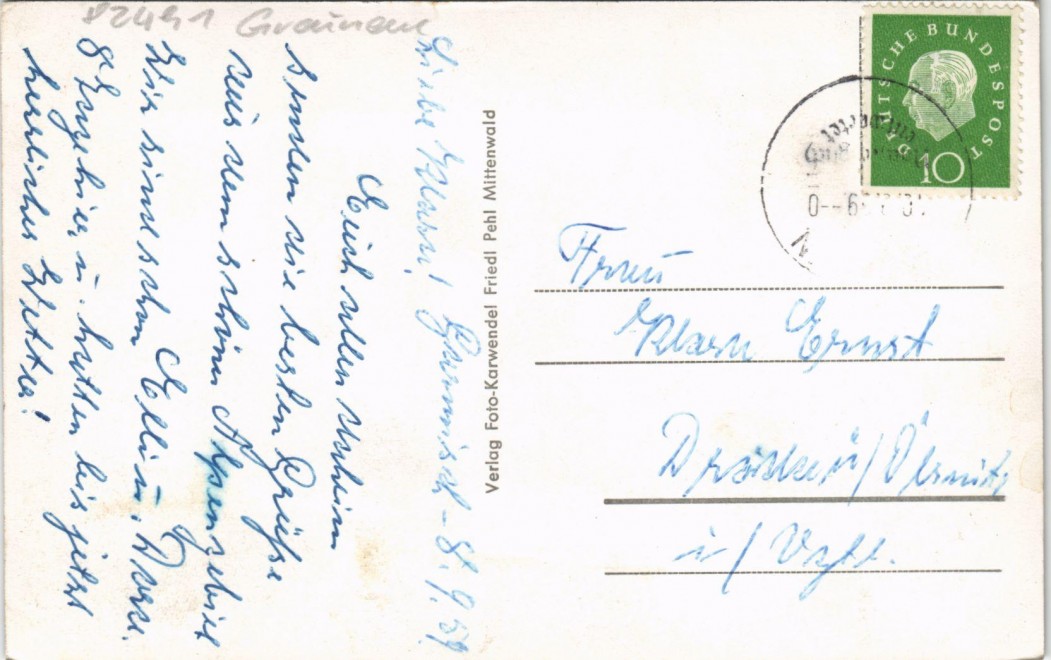 82491 Grainau
Liebe Klara! Garmisch - 8.9.59
Euch allen daheim
senden die besten Grüße
aus dem schönen Alpengebiet
Wir sind schon
8 Tage hier u. hatten bis jetzt
herrliches Wetter!
Verlag Foto-Karwendel Friedl Pehl Mittenwald
DEUTSCHE BUNDESPOST
10
Frau
Klara Ernst
i/Vogtl.